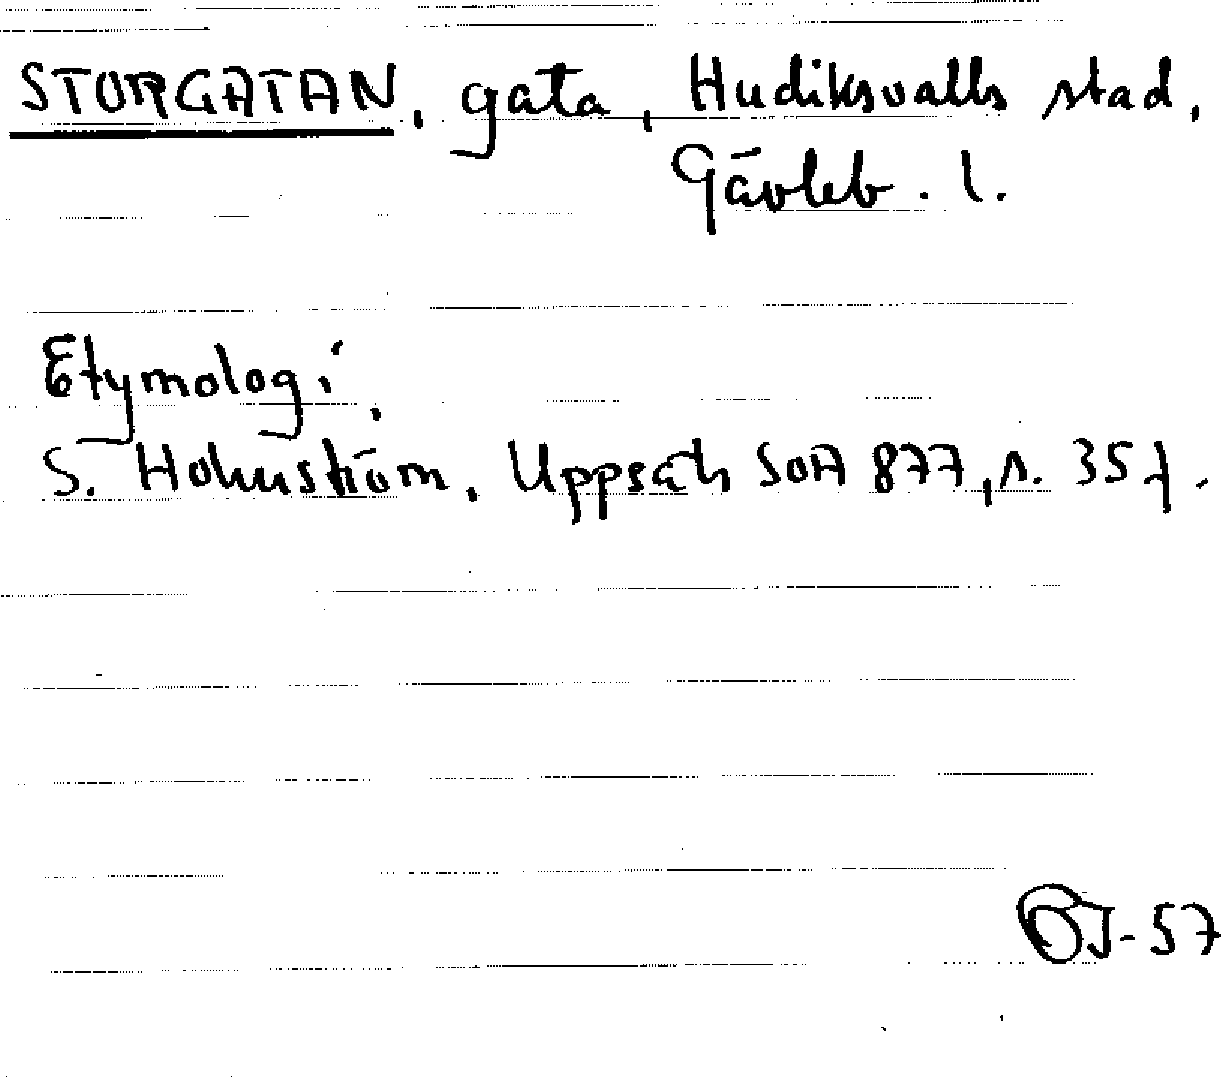 STORGATAN, gata, Hudiksvalls stad,
Gävleb. l.
Etymologi,
S. Holmström, Uppsats SOA 877, s. 35 f.
-57